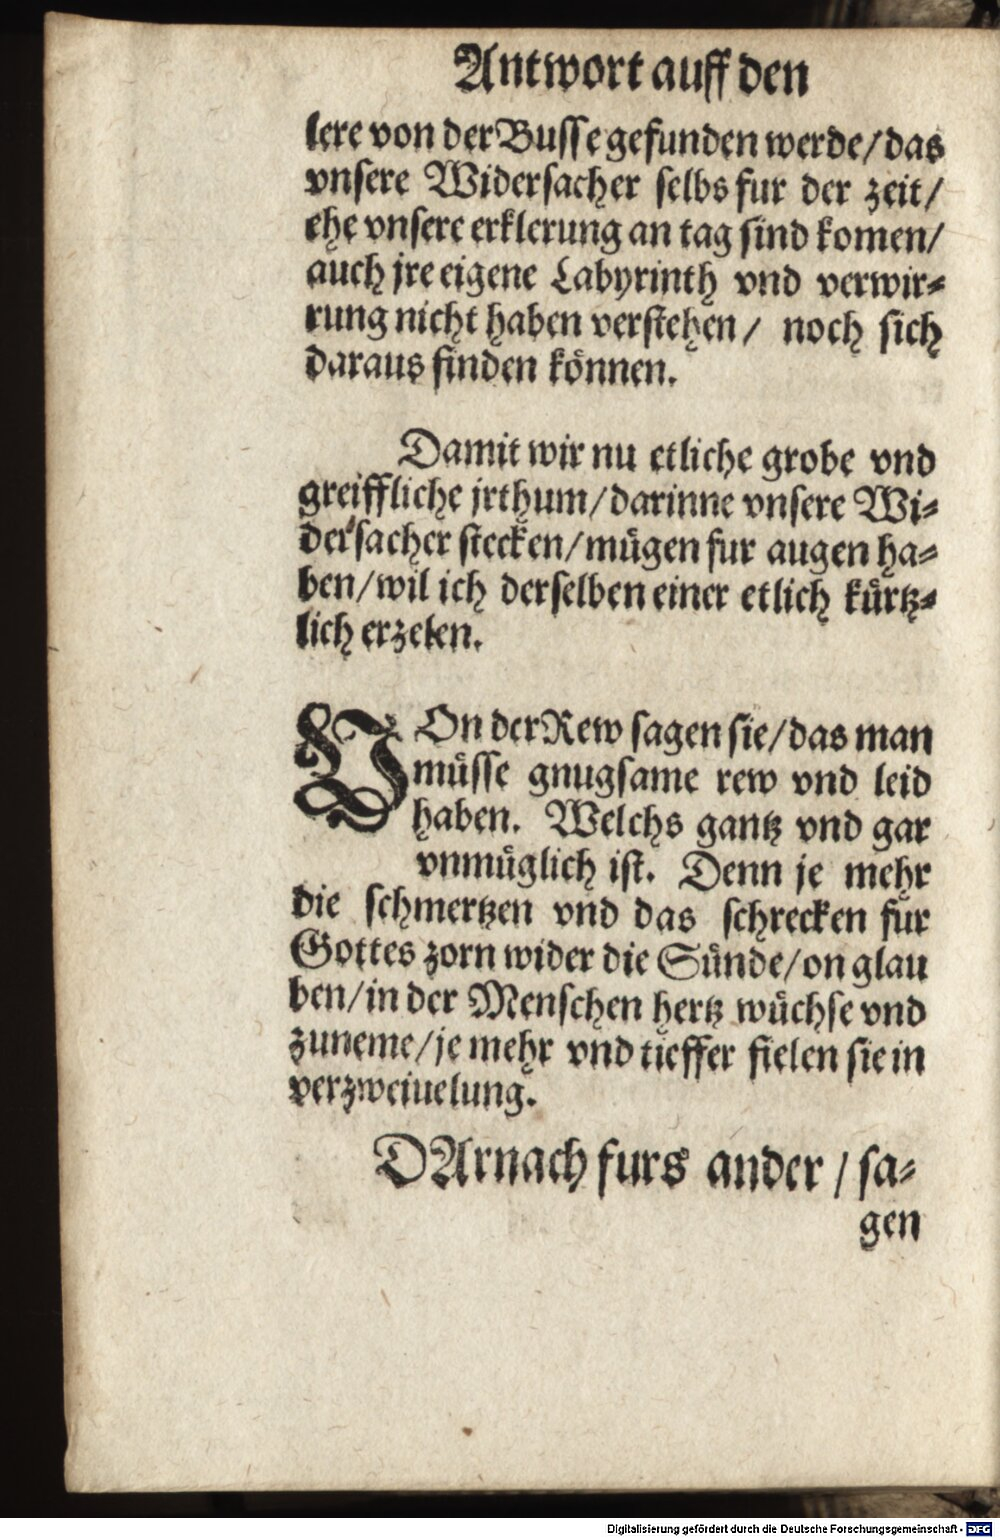 Antwort auff den
lere von der Busse gefunden werde/das
vnsere Widersacher selbs fur der zeit/
ehe vnsere erklerung an tag sind komen/
auch jre eigene Labyrinth vnd verwir⸗
rung nicht haben verstehen/ noch sich
daraus finden können.
Damit wir nu etliche grobe vnd
greiffliche jrthum/darinne vnsere Wi⸗
dersacher stecken/mügen fur augen ha⸗
ben/wil ich derselben einer etlich kürtz⸗
lich erzelen.
VOn der Rew sagen sie/das man
müsse gnugsame rew vnd leid
haben. Welchs gantz vnd gar
vnmüglich ist. Denn je mehr
die schmertzen vnd das schrecken fur
Gottes zorn wider die Sünde/on glau
ben/in der Menschen hertz wüchse vnd
zuneme/je mehr vnd tieffer fielen sie in
verzweiuelung.
DArnach furs ander/sa⸗
gen
Digitalisierung gefördert durch die Deutsche Forschungsgemeinschaft - DFG